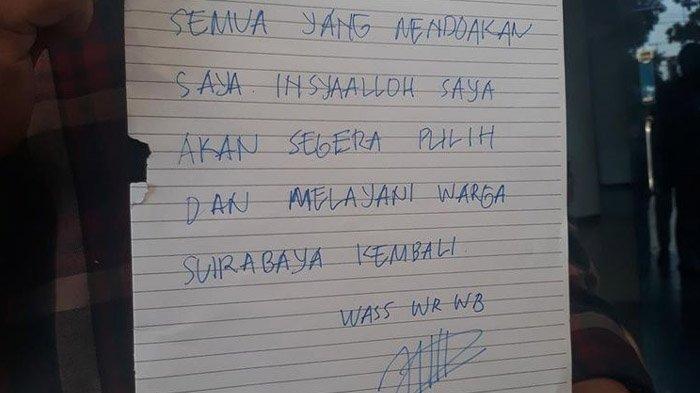 SEMUA YANG MENDOAKAN
SAYA. INSYAALLOH SAYA
AKAN SEGERA PULIH
DAN MELAYANI WARGA
SURABAYA KEMBALI.
WASS WR WB